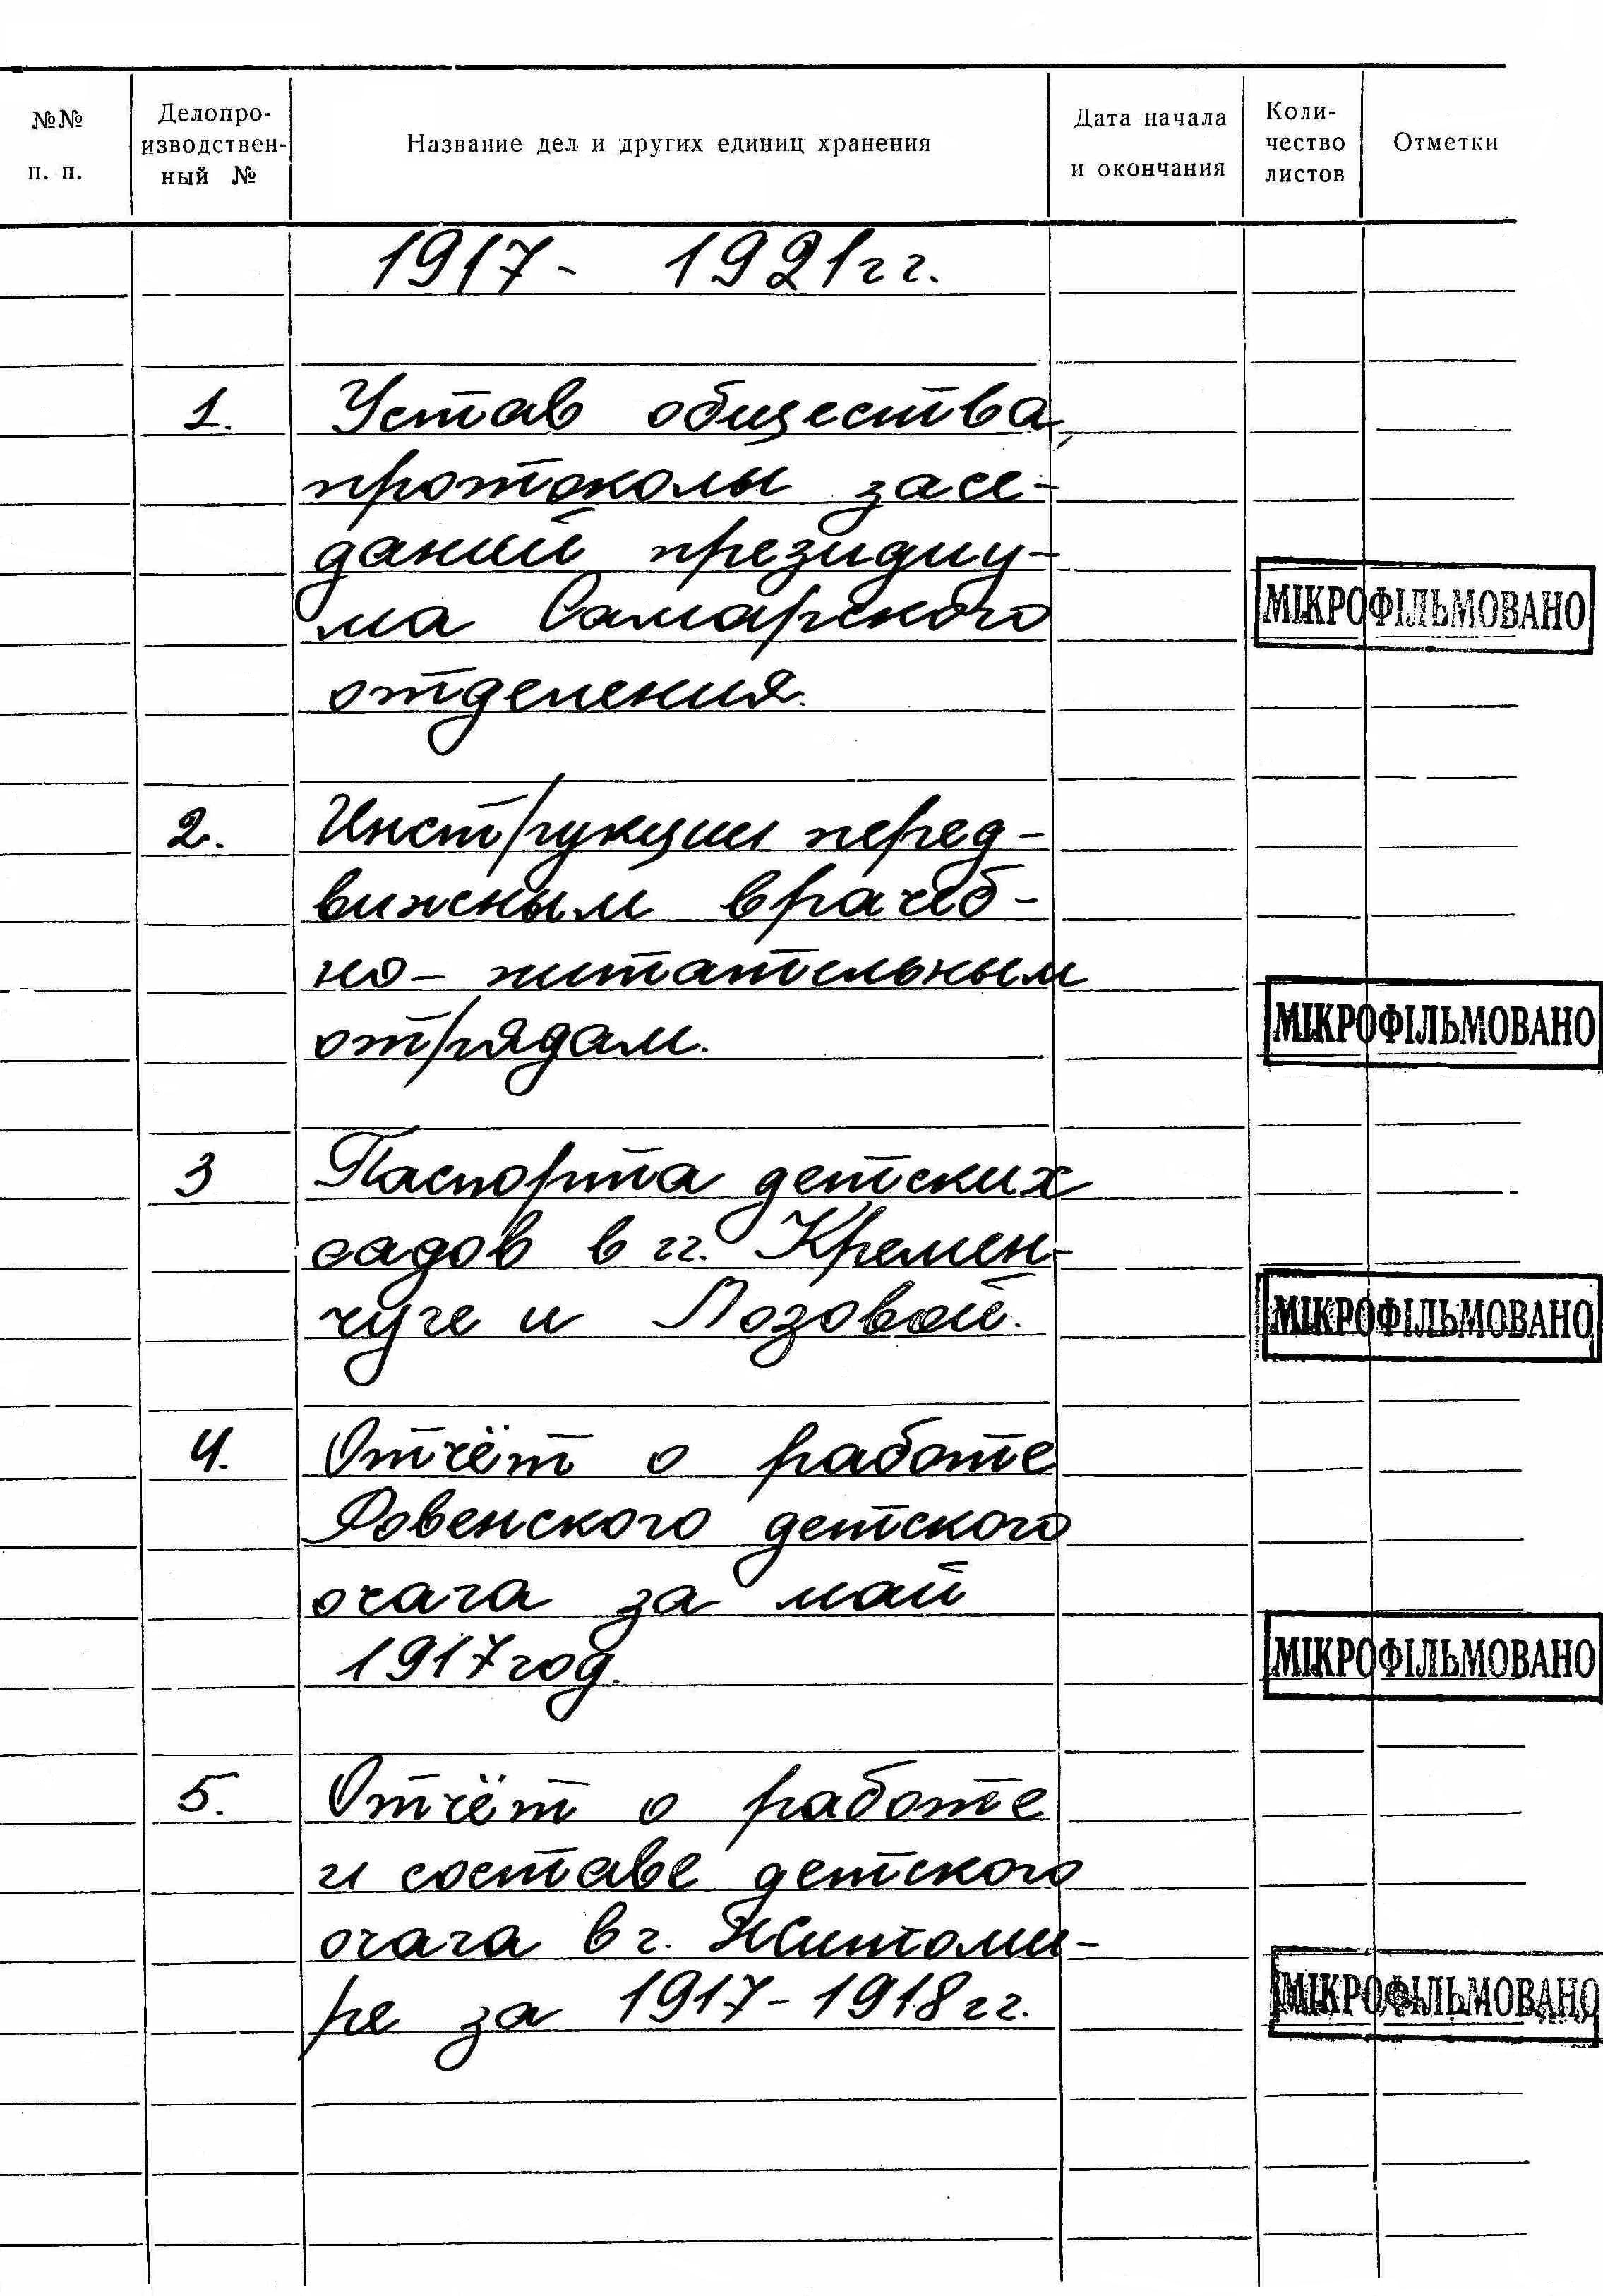 №№ п. п.
Делопро-
изводствен-
ный №
Название дел и других единиц хранения
Дата начала
и окончания
Коли-
чество
листов
Отметки
1917 - 1921 гг.
1. Устав общества,
протоколы засе-
даний президиу-
ма Самарского
МІКРОФІЛЬМОВАНО
отделения.
2. Инструкции перед-
вижным врачеб-
но- питательным
МІКРОФІЛЬМОВАНО
отрядам.
3 Паспорта детских
садов в гг. Кремен-
чуге и Лозовой.
МІКРОФІЛЬМОВАНО
4. Отчёт о работе
Ровенского детского
очага за май
1917 год.
МІКРОФІЛЬМОВАНО
5. Отчёт о работе
и составе детского
очага в г. Житоми-
ре за 1917-1918 гг.
МІКРОФІЛЬМОВАНО